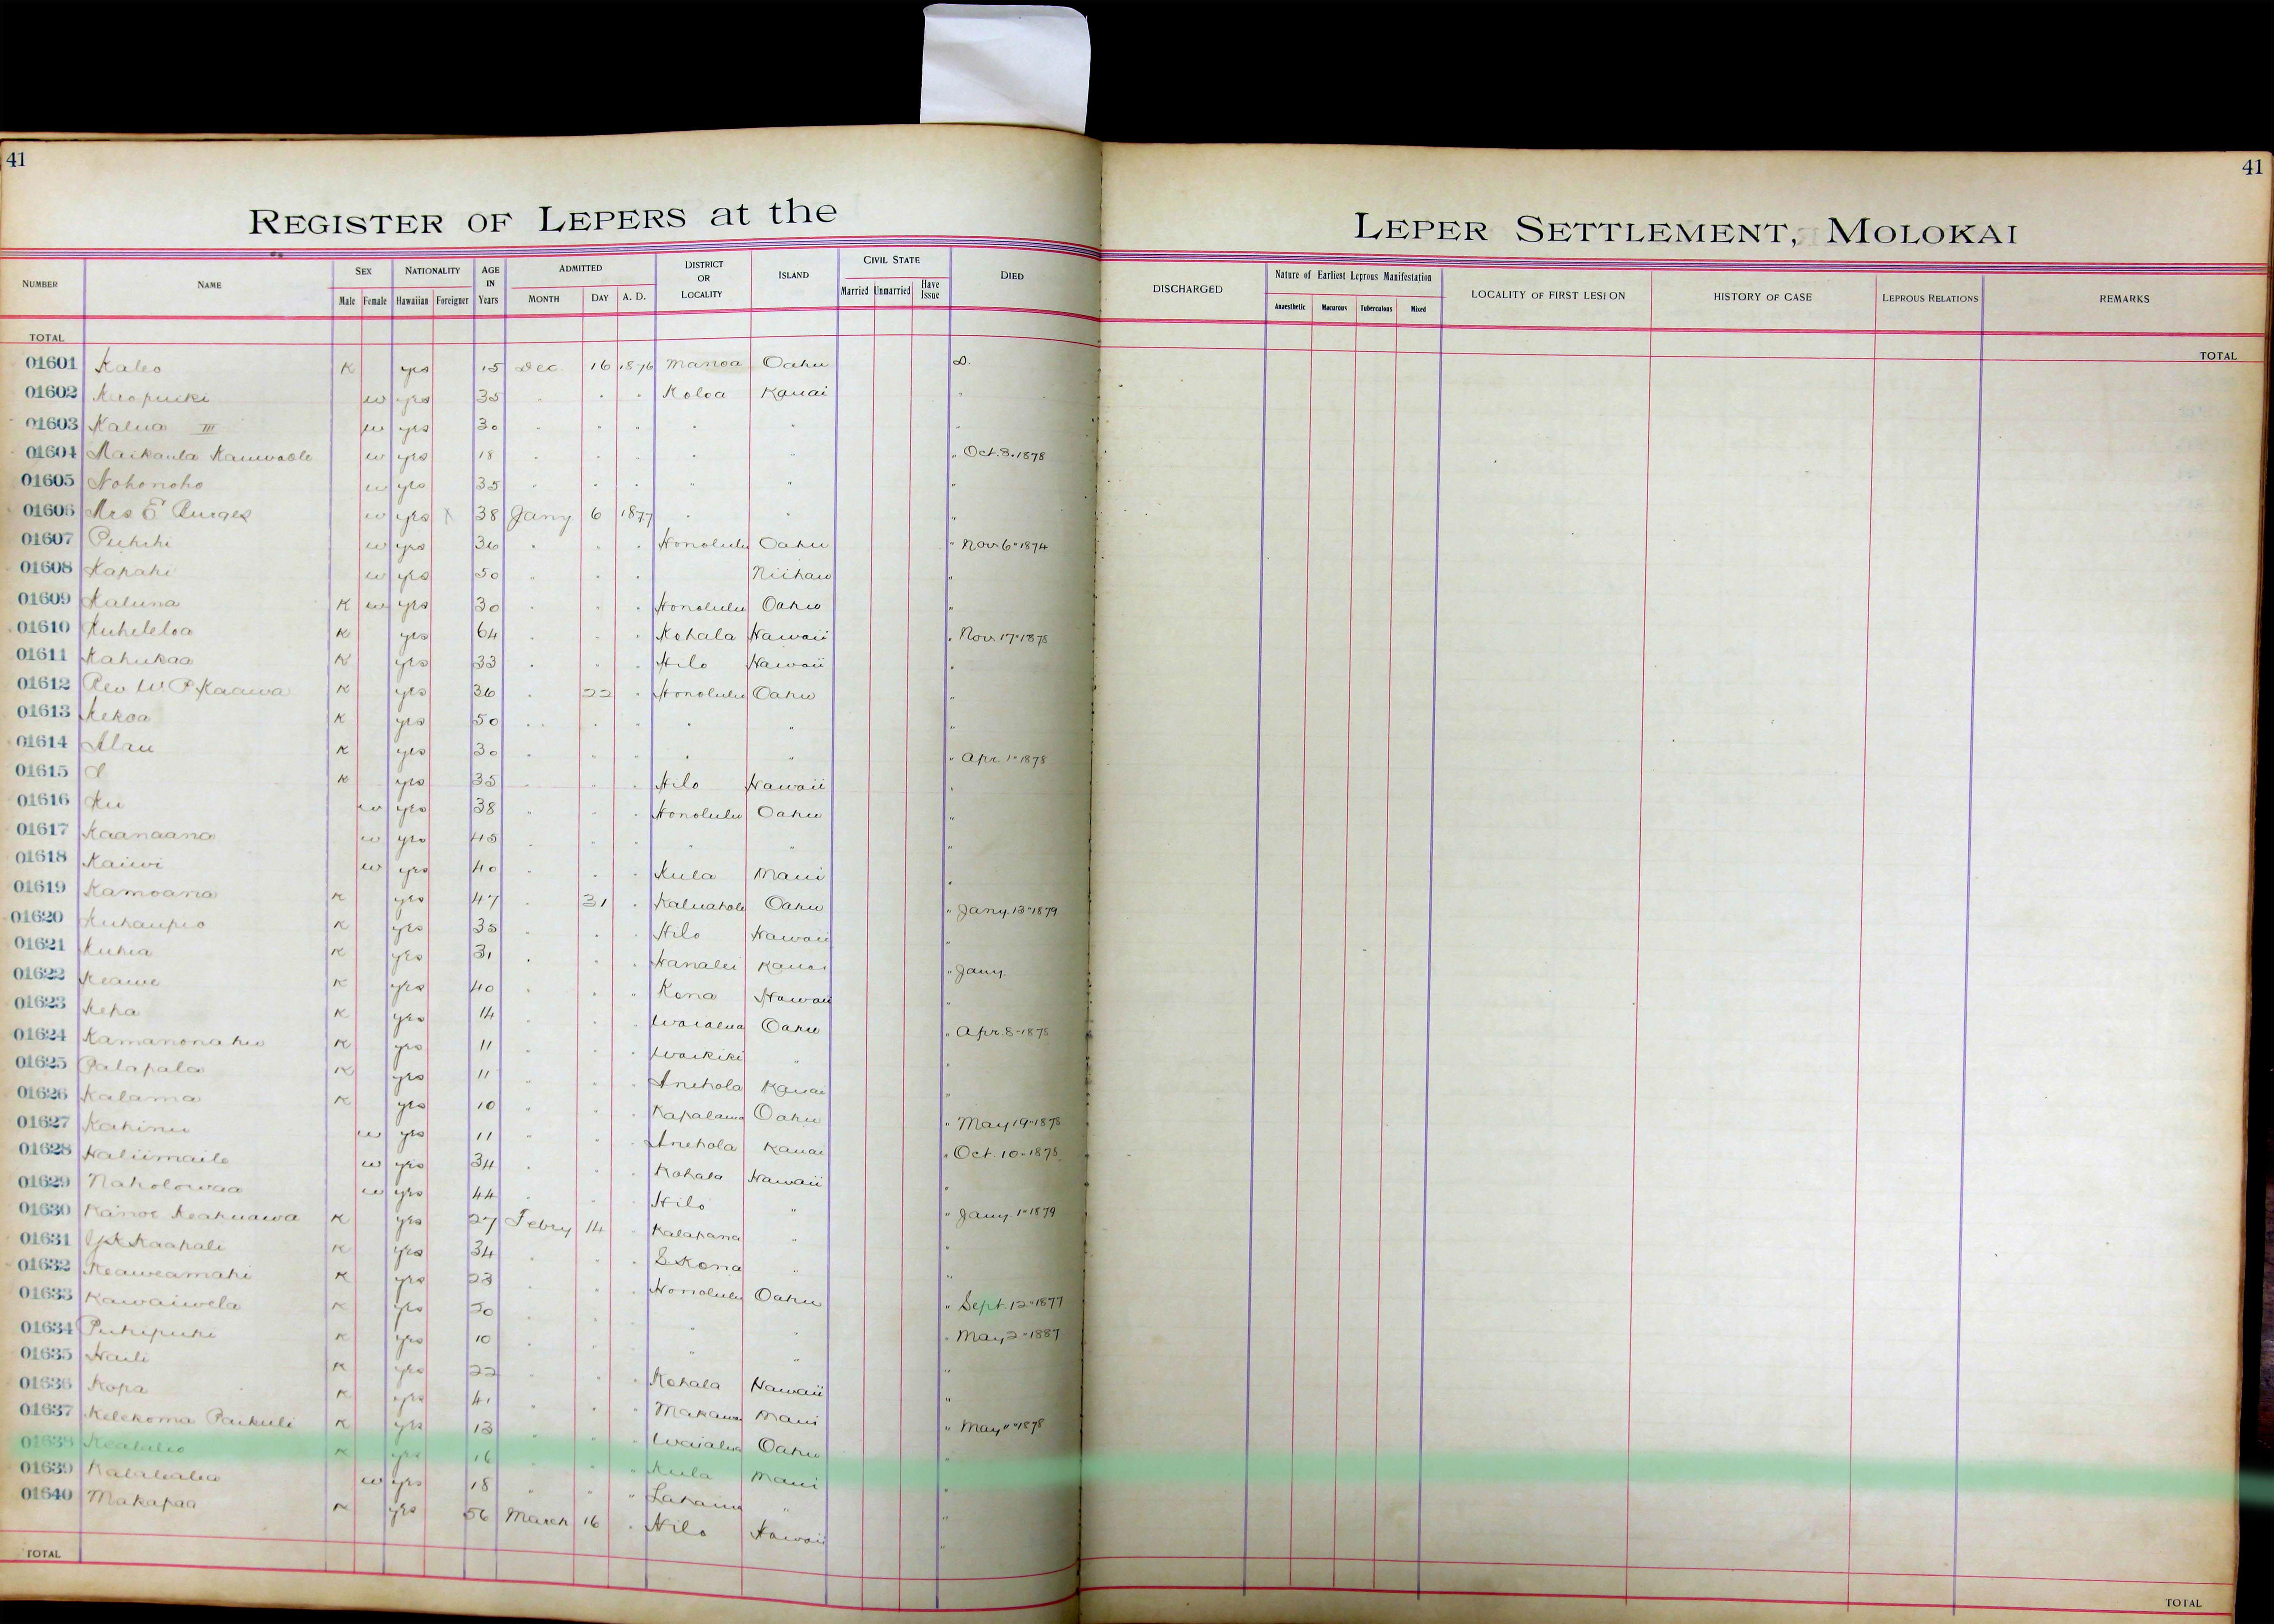 41
41
REGISTER OF LEPERS at the
LEPER SETTLEMENT, MOLOKAI
NUMBER NAME SEX Male Female NATIONALITY Hawaiian Foreigner AGE IN Years ADMITTED MONTH DAY A. D. DISTRICT OR LOCALITY ISLAND CIVIL STATE Married Unmarried Have Issue DIED DISCHARGED Nature of Earliest Leprous Manifestation Anaesthetic Macurous Tuberculous Mixed LOCALITY OF FIRST LESION HISTORY OF CASE LEPROUS RELATIONS REMARKS
TOTAL TOTAL
01601 Kaleo K yes 15 Dec 16 1876 Manoa Oahu D.
01602 w yes 35 " " " Koloa Kauai "
01603 Kalua III w yes 30 " " " " " "
01604 w yes 18 " " " " " " Oct. 3. 1878
01605 Nohonoho w yes 35 " " " " " "
01606 Mrs E Burges w yes X 38 Jany 6 1877 " " "
01607 Puhihi w yes 36 " " " Honolulu Oahu " Nov 6" 1874
01608 Kapahi w yes 50 " " " Niihau "
01609 Kaluna K w yes 30 " " " Honolulu Oahu "
01610 Kuheleloa K yes 64 " " " Kohala Hawaii " Nov 17" 1878
01611 Kahukaa K yes 33 " " " Hilo Hawaii "
01612 Rev W. P. Kaawa K yes 36 " 22 " Honolulu Oahu "
01613 Kekoa K yes 50 " " " " " "
01614 Alau K yes 30 " " " " " " Apr. 1" 1878
01615 K yes 35 " " " Hilo Hawaii "
01616 Ku w yes 38 " " " Honolulu Oahu "
01617 Kaanaana w yes 45 " " " " " "
01618 Kaiwi w yes 40 " " " Kula Maui "
01619 Kamoana K yes 47 " 31 " Kaluahole Oahu " Jany. 13" 1879
01620 Kuhaupio K yes 35 " " " Hilo Hawaii "
01621 Kuhia K yes 31 " " " Hanalei Kauai " Jany.
01622 Keawe K yes 40 " " " Kona Hawaii "
01623 Kepa K yes 14 " " " Waialua Oahu " Apr. 8" 1878
01624 Kamanonahu K yes 11 " " " Waikiki " "
01625 Palapala K yes 11 " " " Anehola Kauai "
01626 Kalama K yes 10 " " " Kapalama Oahu " May 19" 1878
01627 Kahinu w yes 11 " " " Anehola Kauai " Oct. 10" 1878
01628 Haliimaile w yes 34 " " " Kohala Hawaii "
01629 Naholowaa w yes 44 " " " Hilo " " Jany. 1" 1879
01630 Kanoe Keakuawa K yes 27 Febry 14 " Kalapana " "
01631 Kaahale K yes 34 " " " S Kona " "
01632 Keaweamahi K yes 23 " " " Honolulu Oahu " Sept. 12" 1877
01633 Kawaiwela K yes 20 " " " " " " May 2" 1887
01634 Puhipuhi K yes 10 " " " " " "
01635 Haili K yes 22 " " " Kohala Hawaii "
01636 Kopa K yes 41 " " " Makawao Maui " May " 1878
01637 Kelekoma Paikuli K yes 13 " " " Waialua Oahu "
01638 K yes 16 " " " Kula Maui "
01639 w yes 18 " " " Lahaina " "
01640 Makapaa K yes 56 March 16 " Hilo Hawaii "
TOTAL TOTAL